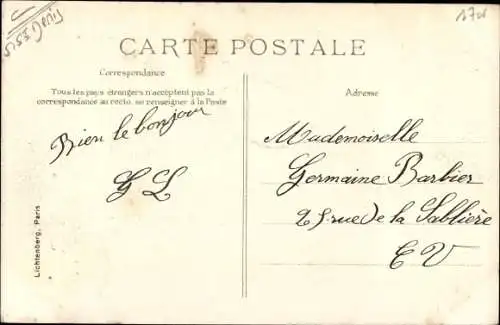 CARTE POSTALE
Correspondance
Tous les pays étrangers n'acceptent pas la
correspondance au recto, se renseigner à la Poste
Bien le bonjour
G L
Lichtenberg, Paris
Adresse
Mademoiselle
Germaine Barbier
25 rue de la Sablière
E V